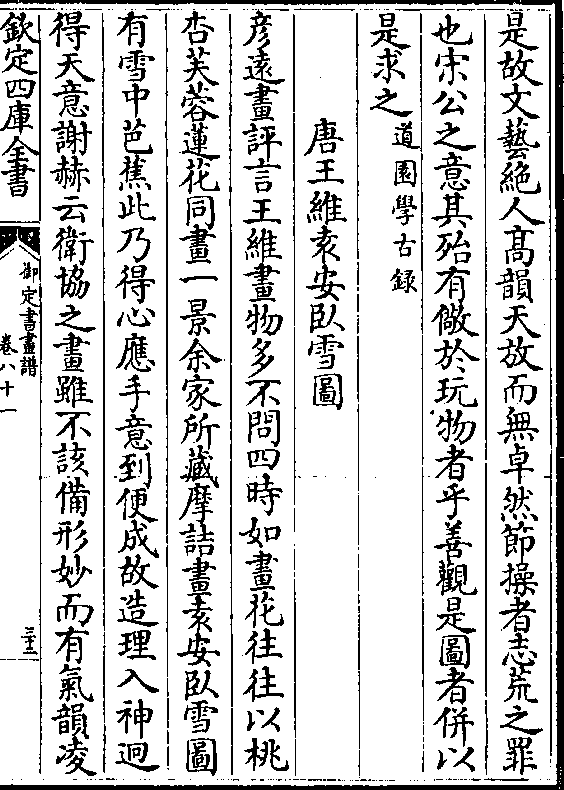 是故文藝絶人髙韻天放而無卓然節操者志荒之罪
也宋公之意其殆有儆於玩物者乎善觀是圖者併以
是求之道園學古録
唐王維袁安臥雪圖
彦遠畫評言王維畫物多不問四時如畫花往往以桃
杏芙蓉蓮花同畫一景余家所藏摩詰畫袁安臥雪圖
有雪中芭蕉此乃得心應手意到便成故造理入神迥
得天意謝赫云衛協之畫雖不該備形妙而有氣韻凌
欽定四庫全書
御定書畫譜
卷八十一
三十三